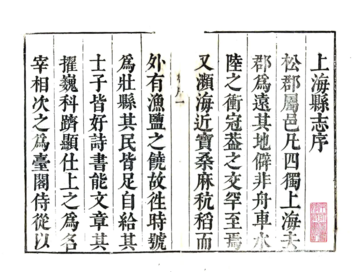 上海縣志序
松郡屬邑凡四獨上海去
郡爲遠其地僻非舟車水
陸之衝冠蓋之交罕至焉
又瀕海近寶桑麻秔稻而
外有漁鹽之饒故徃時號
爲壯縣其民皆足自給其
士子皆好詩書能文章其
擢巍科躋顯仕上之爲名
宰相次之爲臺閣侍從以